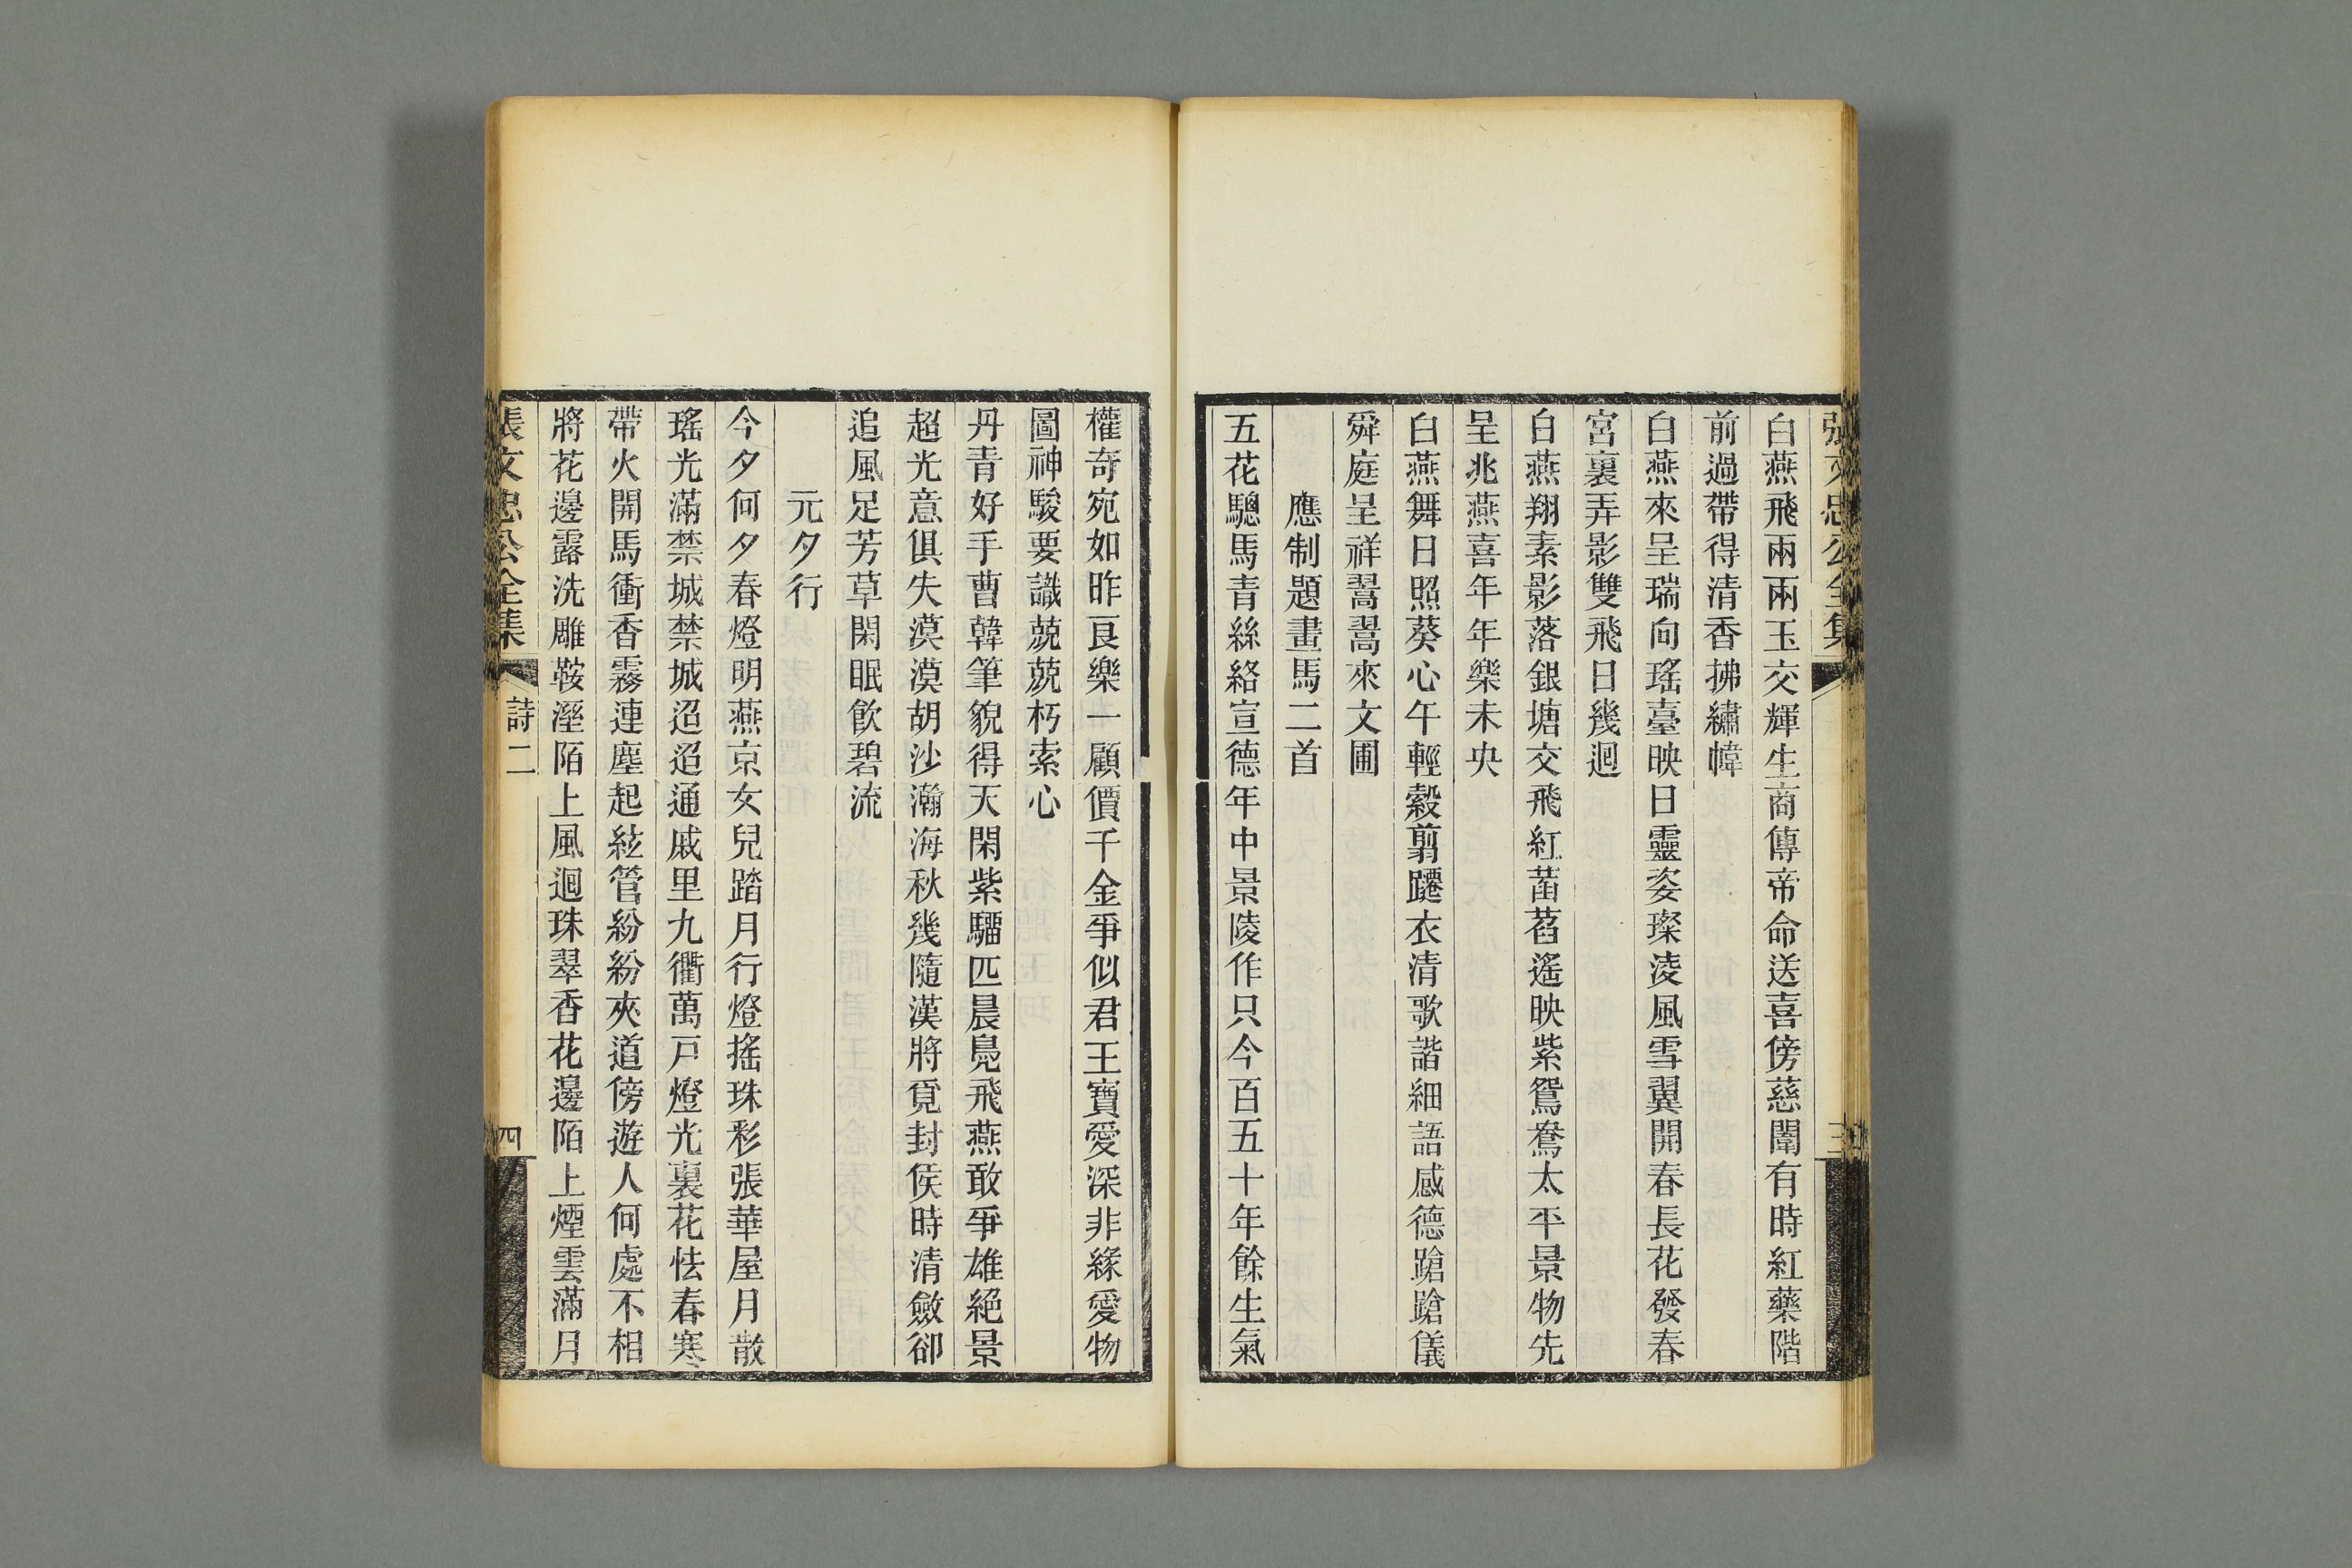 張文忠公全集 三
白燕飛兩兩玉交輝生商傳帝命送喜傍慈闈有時紅藥階
前過帶得清香拂繡幃
白燕來呈瑞向瑤臺映日靈姿璨淩風雪翼開春長花發春
宮裏弄影雙飛日幾迴
白燕翔素影落銀塘交飛紅菡萏遙映紫鴛鴦太平景物先
呈兆燕喜年年樂未央
白燕舞日照葵心午輕縠翦躚衣清歌諧細語感德蹌蹌儀
舜庭呈祥翯翯來文圃
應制題畫馬二首
五花驄馬青絲絡宣德年中景陵作只今百五十年餘生氣
權奇宛如昨良樂一顧價千金爭似君王寶愛深非緣愛物
圖神駿要識兢兢朽索心
丹青好手曹韓筆貌得天閑紫騮匹晨鳧飛燕敢爭雄絕景
超光意俱失漠漠胡沙瀚海秋幾隨漢將覓封侯時清斂卻
追風足芳草閑眠飲碧流
元夕行
今夕何夕春燈明燕京女兒踏月行燈搖珠彩張華屋月散
瑤光滿禁城禁城迢迢通戚里九衢萬戸燈光裏花怯春寒
帶火開馬衝香霧連塵起絃管紛紛夾道傍遊人何處不相
將花邊露洗雕鞍溼陌上風迴珠翠香花邊陌上煙雲滿月
張文忠公全集 詩二 四